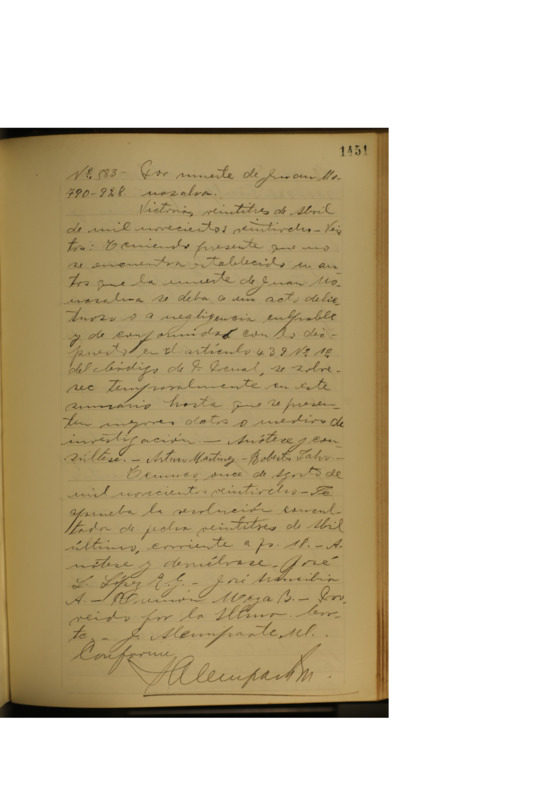 1451
Nº 583 - Por muerte de Juan Mo-
790-928 nasalva.
Victoria, veintitres de Abril
de mil novecientos veintiocho - Vis-
tos: Teniendo presente que no
se encuentra establecido en au-
tos que la muerte de Juan Mo-
nasalva se deba a un acto delic-
tuoso o a negligencia culpable
y de conformidad con lo dis-
puesto en el artículo 439 Nº 1º
del Código de P. Penal, se sobre-
see temporalmente en este
sumario hasta que se presen-
ten mejores datos o medios de
investigación. - Anótese y con-
súltese. - Arturo Martinez - Roberto
Temuco, once de Agosto de
mil novecientos veintiocho - Se
aprueba la resolución consul-
tada de fecha veintitres de Abril
último, corriente a fs. 18. - A-
nótese y devuélvase. - José
L. López - José
A. - Ramón Maza B. - Pro-
veido por la Iltma. Cor-
te. - J. Alemparte M.
Conforme
Alemparte M.